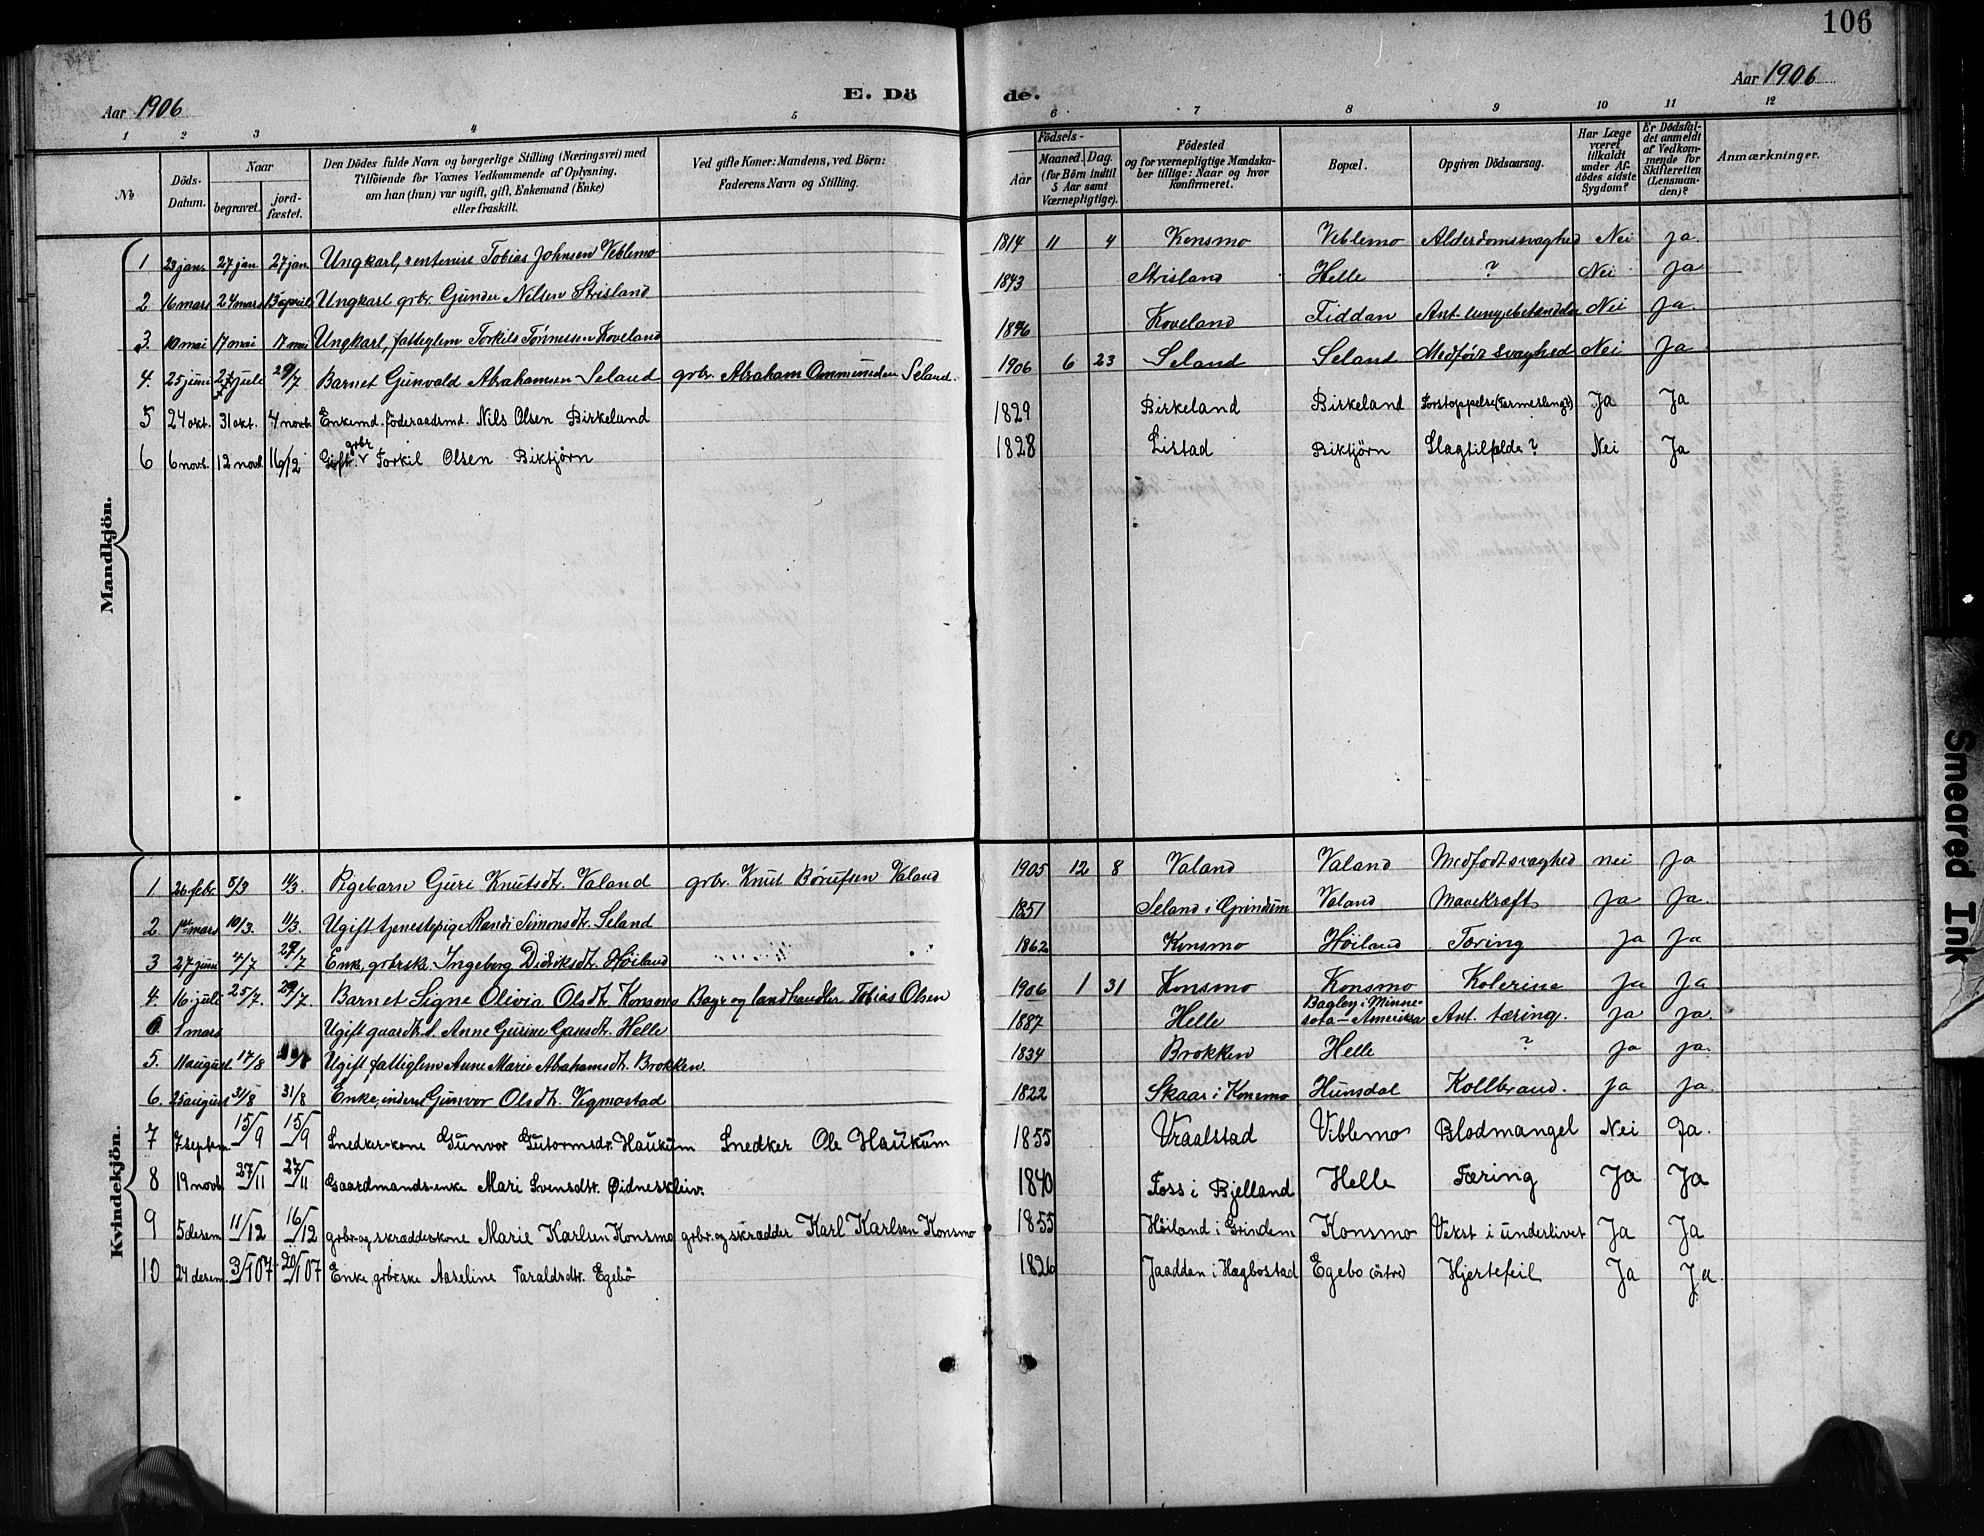 106
Aar 1906
E. Dö
de.
Aar 1906
1 2 3 4 5 6 7 8 9 10 11 12
№
Döds-Datum.
Naar
begravet.
jord-fæstet.
Den Dödes fulde Navn og borgerlige Stilling (Næringsvei) med
Tilföiende for Voxnes Vedkommende af Oplysning,
om han (hun) var ugift, gift, Enkemand (Enke)
eller fraskilt.
Ved gifte Koner: Mandens, ved Börn:
Faderens Navn og Stilling.
Födsels-
Aar
Maaned. Dag.
(for Börn indtil
5 Aar samt
Værnepligtige).
Födested
og for værnepligtige Mandska-
ber tillige: Naar og hvor
konfirmeret.
Bopæl.
Opgiven Dödsaarsag.
Har Læge
været
tilkaldt
under Af-
dödes sidste
Sygdom?
Er Dödsfal-
det anmeldt
af Vedkom-
mende for
Skifteretten
(Lensman-
den)?
Anmærkninger.
Mandkjön.
1 23 jan. 27 jan 27 jan. Ungkarl, rentenist Tobias Johnsen Veblemo 1814 11 4 Konsmo Veblemo Alderdomssvaghed Nei ja.
2 16 mars 24 mars 13 april Ungkarl grbr. Gunder Nilsen Strisland 1843 Strisland Helle ? Nei ja
3. 10 mai 17 mai 17 mai Ungkarl, fattiglem Torkils Tønnessen Koveland 1896 Koveland Fiddan Ant. lungebetændelse Nei ja.
4. 25 juni juli 29/7 Barnet Gunvald Abrahamsen Seland grbr. Abraham Ommundsen Seland. 1906 6 23 Seland Seland Medfödt svaghed Nei ja
5 24 okt. 31 okt. 4 novb. Enkemd. föderaadsmd. Nils Olsen Birkeland 1829 Birkeland Birkeland Forstoppelse (Tarmeslyng?) Ja Ja
6 6 novb. 12 novb 16/12 Gift grbr Torkil Olsen Biktjörn 1828 Listad Biktjörn Slagtilfælde? Nei Ja
Kvindekjön.
1 26 febr. 5/3 11/3. Pigebarn Guri Knutsdt. Valand grbr. Knut Börufsen Valand 1905 12 8 Valand Valand Medfødt svaghed nei ja
2 1ste mars 10/3. 11/3. Ugift tjenestepige Randi Simonsdt. Seland 1851 Seland i Grindum Valand Mavekræft ja ja.
3 27 juni 4/7 29/7 Enke, grbrsk. Ingeborg Didriksdt. Høiland 1862 Konsmo Høiland Tæring ja ja
4. 16. juli 25/7. 29/7. Barnet Signe Olivia Olsdt. Konsmo Bagr og landhandler Tobias Olsen 1906 1 31 Konsmo Konsmo Kolerine ja ja
0. 1 mars Ugift gaardt. Anne Gurine Gansdt. Helle 1887 Helle Bagley i Minne-
sota - Amerika Ant. tæring. ja ja.
5. 11 august 17/8 Ugift fattiglem Anne Marie Abrahamsdt. Brokken. 1834 Brokken Helle ? ja ja.
6. 25 august 31/8 31/8 Enke, inderst Gunvor Olsdt. Vigmostad 1822 Skaar i Konsmo Hunsdal Kollbrand. ja ja.
7 7 septem. 15/9 15/9 Snedker-kone Gunvor Gutormsdr. Haukum Snedker Ole Haukum 1855 Vraalstad Viblemo Blodmangel Nei Ja.
8 19 novb. 27/11 27/11 Gaardmands-enke Mari Svensdtr. Øidneskleiv. 1840 Foss i Bjelland Helle Tæring Ja Ja
9 5 desem 11/12 16/12 grbr. og skrædderkone Marie Karlsen Konsmo grbr. og skrædder Karl Karlsen Konsmo 1855 Höiland i Grindem Konsmo Vekst i underlivet Ja Ja
10 24 desem. 3/1 07 20/1 07 Enke, grbrske Aaseline Taraldsdtr. Egebö 1826 Jaaddan i Hægbostad Egebø (östre) Hjertefeil Ja Ja.
Smeared Ink